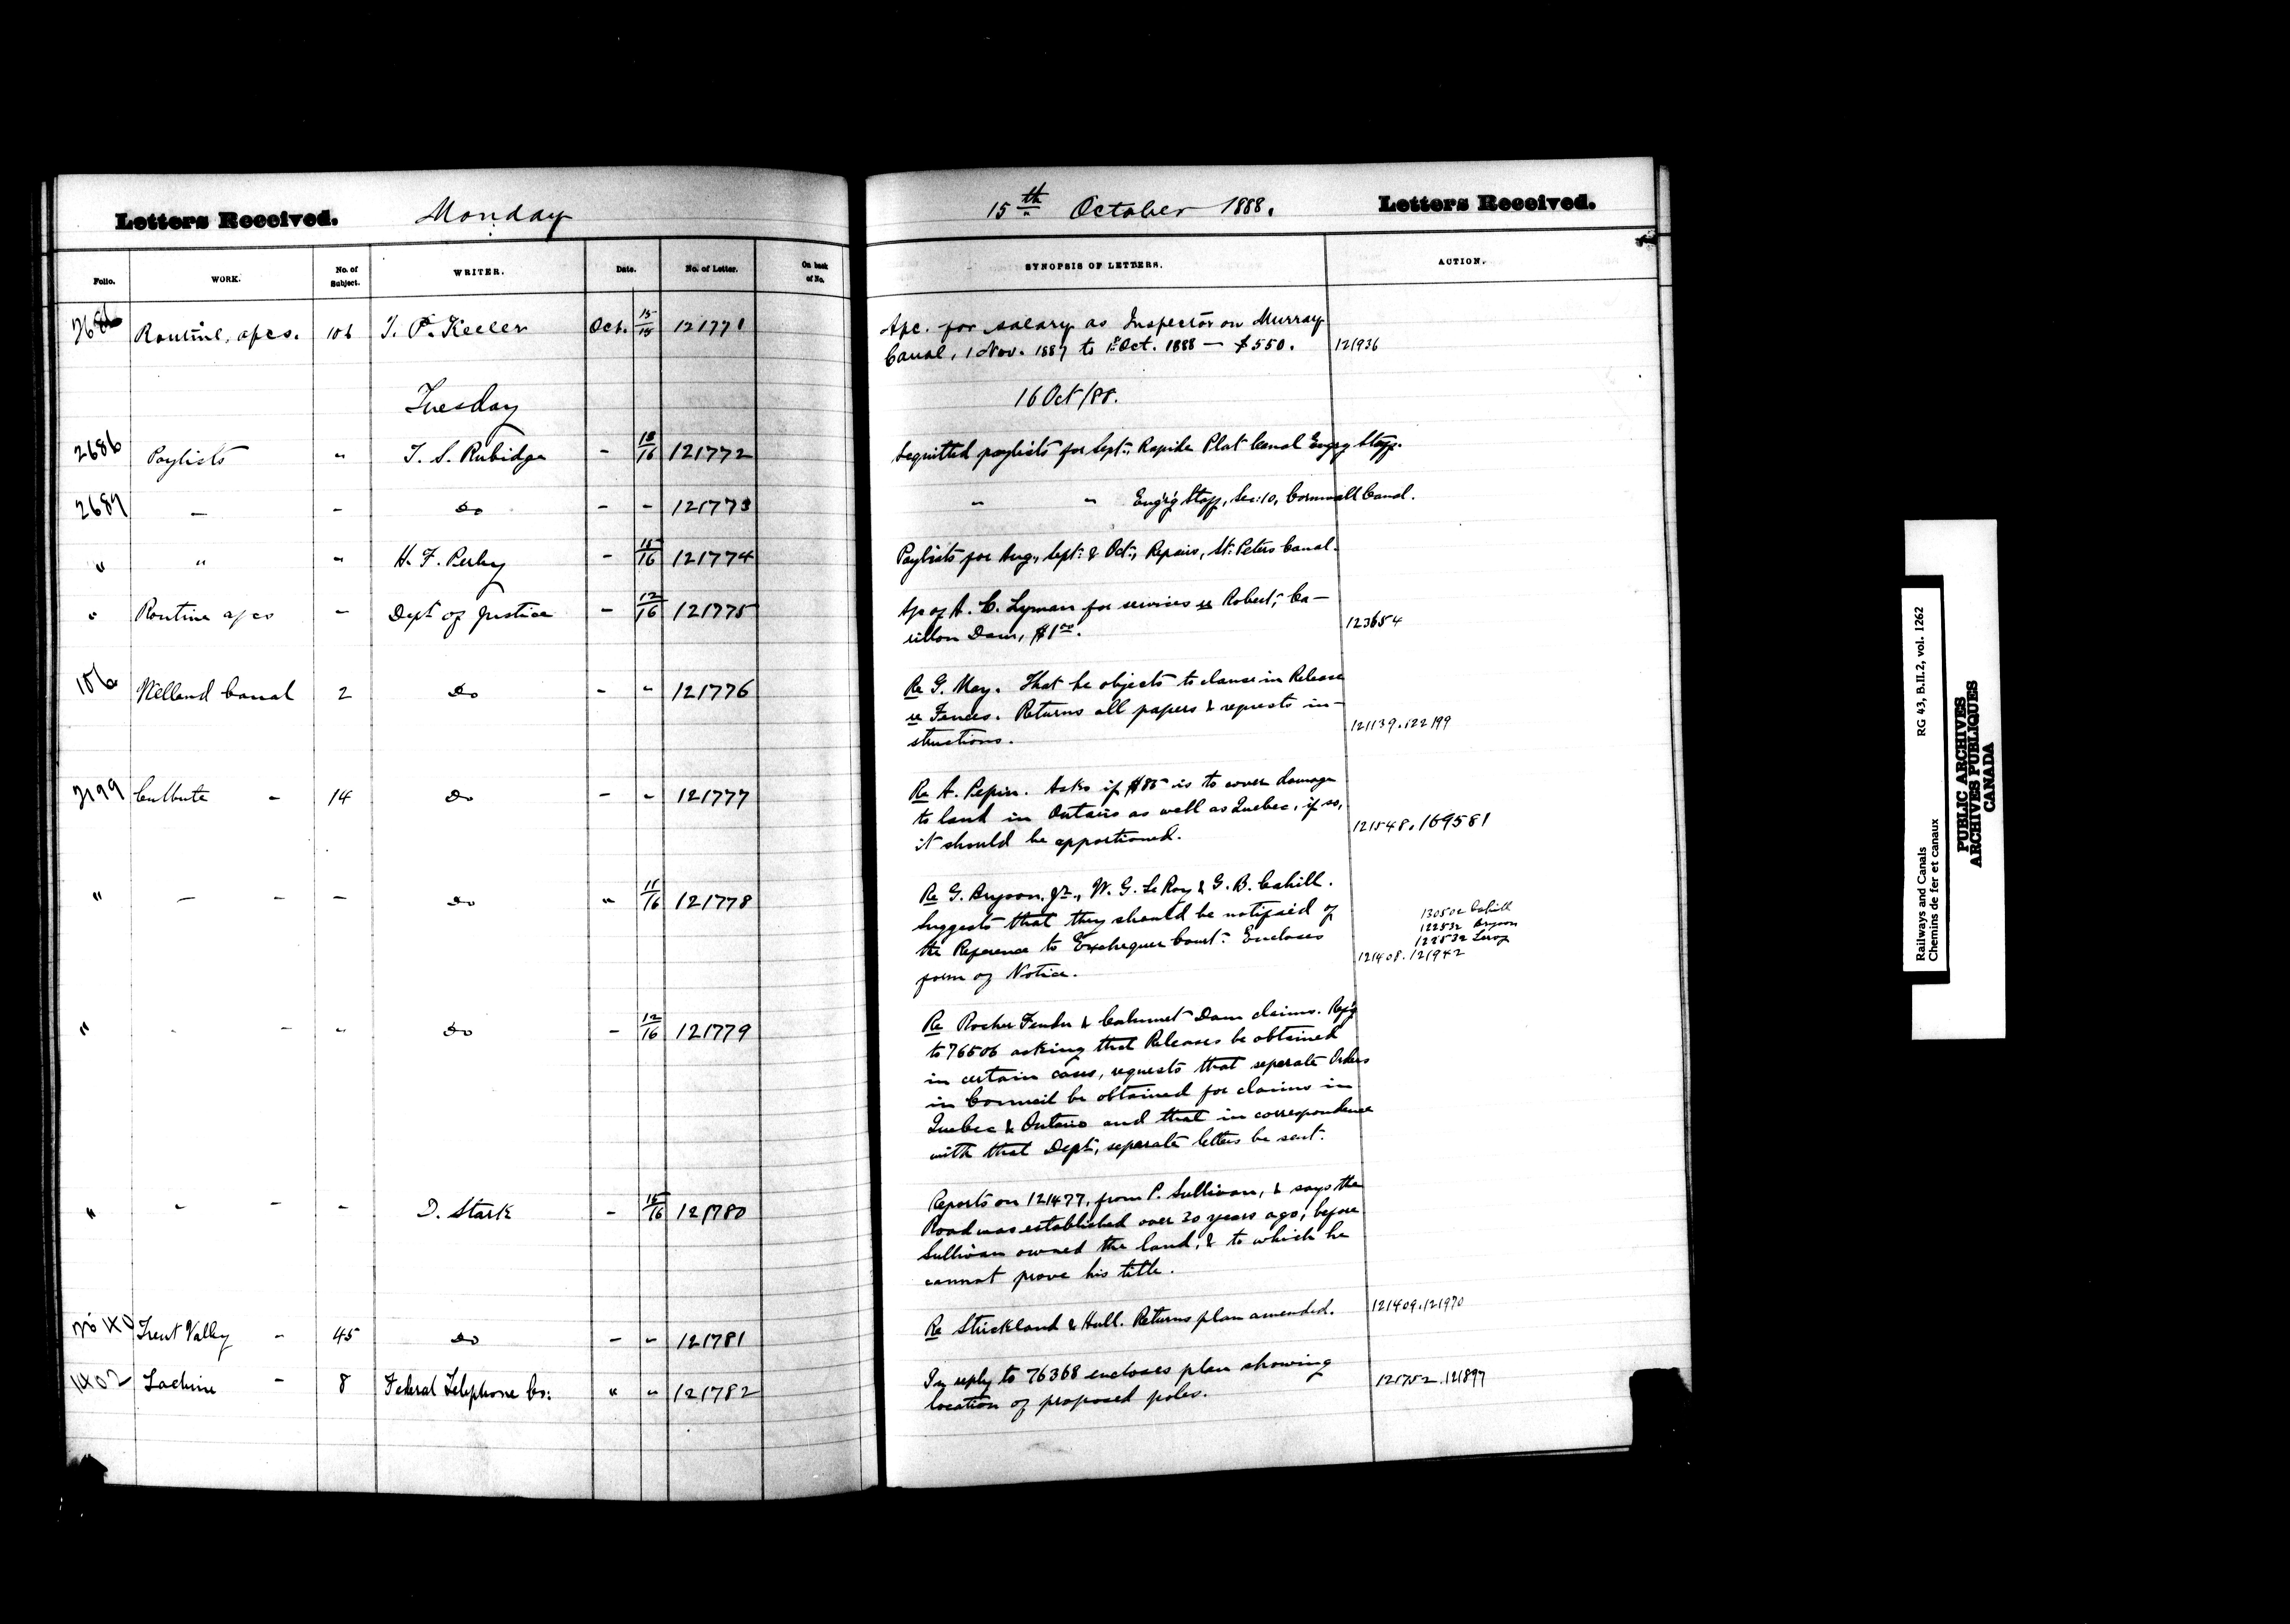 Letters Received. Monday 15th October 1888. Letters Received.
Folio. WORK. No. of Subject. WRITER. Date. No. of Letter. On back of No. SYNOPSIS OF LETTERS. ACTION.
2686 Routine, apcs. 106 T. P. Keeler Oct. 15/15 121771 Apc. for salary as Inspector on Murray
Canal, 1 Nov. 1887 to 1 Oct. 1888 — $550. 121936
Tuesday 16 Oct/88.
2686 Paylists " T. S. Rubidge - 13/16 121772 Acquitted paylists for Sept., Rapide Plat Canal Eng'g Staff.
2687 — - Do - - 121773 " " Eng'g Staff, Sec: 10, Cornwall Canal.
" " " H. F. Perley - 15/16 121774 Paylists for Aug., Sept: & Oct., Repairs, St. Peters Canal.
" Routine apcs - Dept of Justice - 12/16 121775 Apc of A. C. Lyman for services re Robert, Ca-
rillon Dam, $1.00. 123654
106 Welland Canal 2 Do - " 121776 Re G. May. That he objects to clause in Release
re Fences. Returns all papers & requests in-
structions. 121139.122199
2199 Culbute - 14 Do - - 121777 Re A. Pepin. Asks if $85 is to cover damage
to land in Ontario as well as Quebec, if so,
it should be apportioned. 121548.169581
" — - - Do " 11/16 121778 Re G. Bryson, Jr., W. G. LeRoy & G. B. Cahill.
Suggests that they should be notified of
the Reference to Exchequer Court. Encloses
form of Notice.
130502 Cahill
122532 Bryson
122532 Leroy
121408.121942
" - - " Do - 12/16 121779 Re Rocher Fendu & Calumet Dam claims. Ref'g
to 76506 asking that Releases be obtained
in certain cases, requests that seperate Orders
in Council be obtained for claims in
Quebec & Ontario and that in correspondence
with that Dept, separate letters be sent.
" - - - D. Stark - 15/16 121780 Reports on 121477, from P. Sullivan, & says the
Road was established over 20 years ago, before
Sullivan owned the land, & to which he
cannot prove his title.
Trent Valley - 45 Do - - 121781 Re Strickland & Hull. Returns plan amended. 121409.121970
1402 Lachine - 8 Federal Telephone Co: " " 121782 In reply to 76368 encloses plan showing
location of proposed poles. 121752.121897
Railways and Canals RG 43, B.II.2, vol. 1262
Chemins de fer et canaux
PUBLIC ARCHIVES
ARCHIVES PUBLIQUES
CANADA